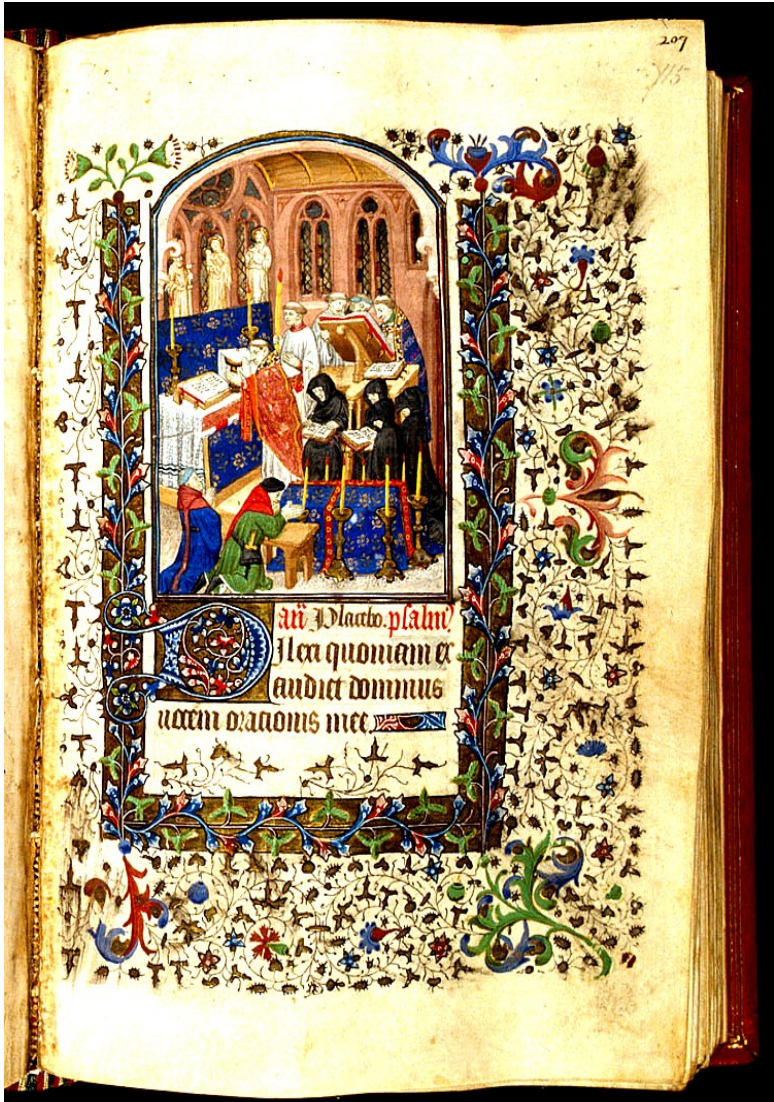 207
115
añ Placebo. psalm9
Dilexi quoniam ex
audiet dominus
uocem orationis mee.